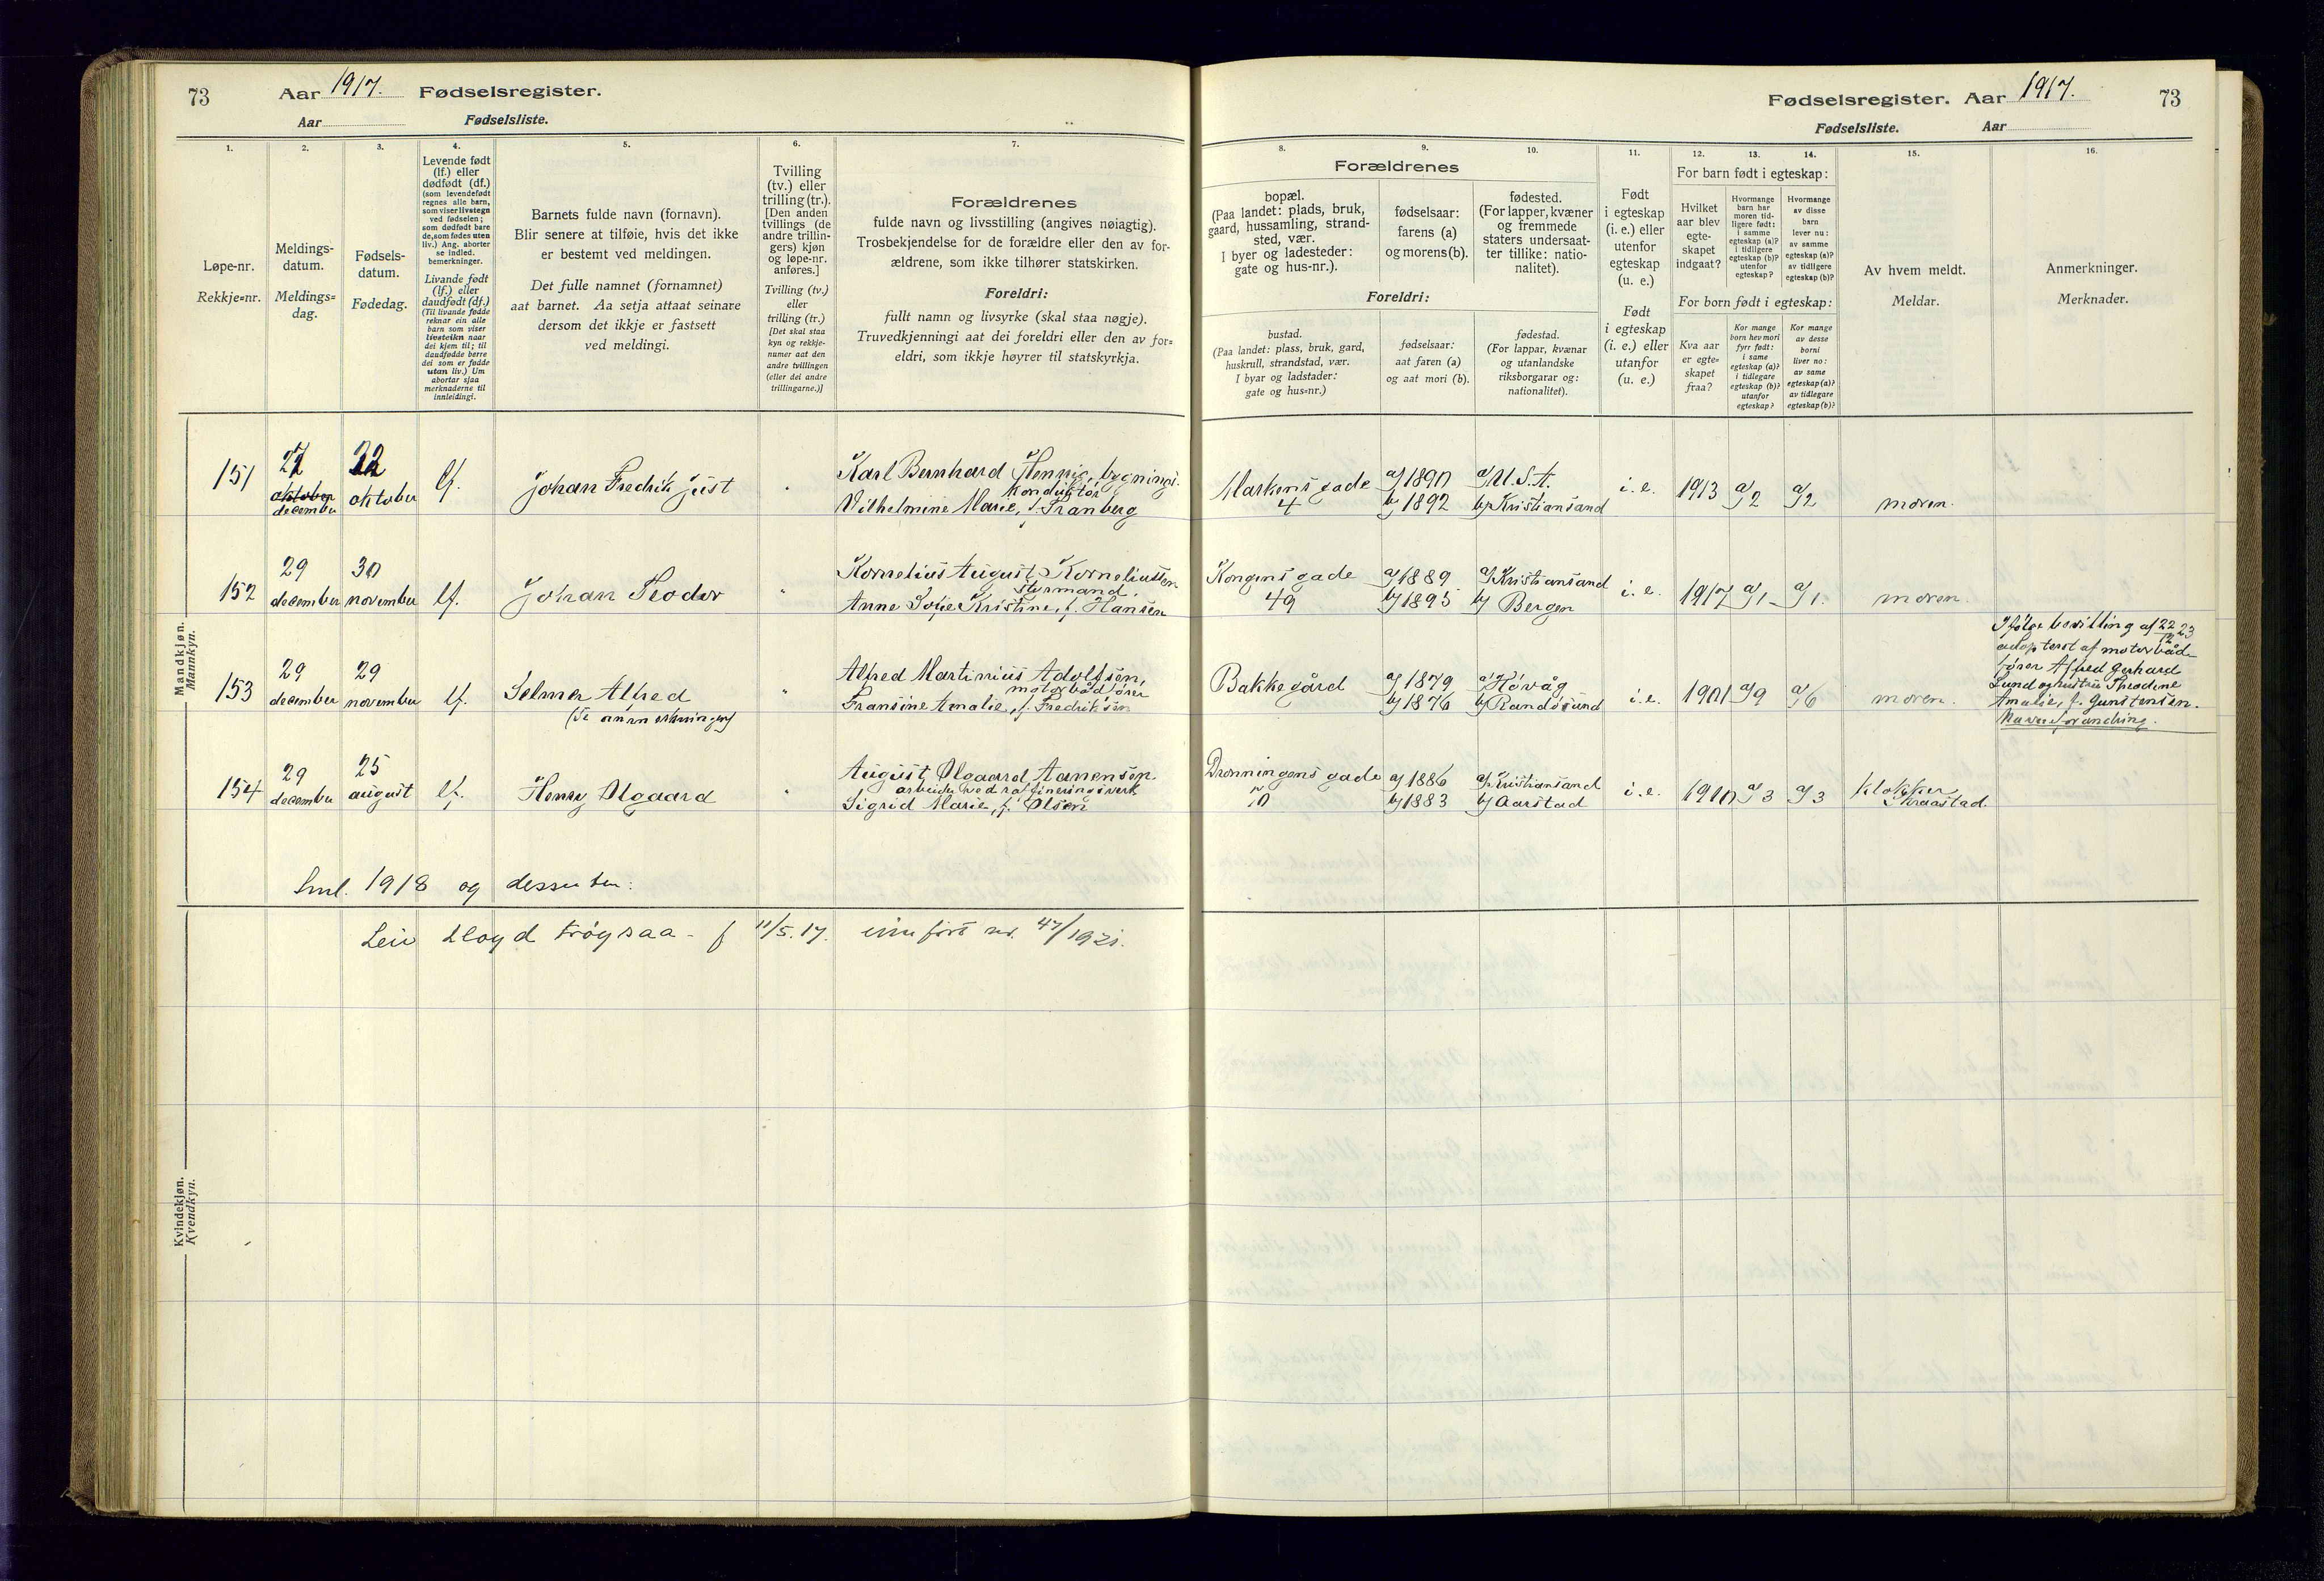 73
Aar 1917. Fødselsregister.
Aar Fødselsliste.
Fødselsregister. Aar 1917.
73
Fødselsliste. Aar
1. 2. 3. 4. 5. 6. 7.
8. 9. 10. 11. 12. 13. 14. 15. 16.
Løpe-nr.
Rekkje=nr.
Meldings-
datum.
Meldings=
dag.
Fødsels-
datum.
Fødedag.
Levende født
(lf.) eller
dødfødt (df.)
(som levendefødt
regnes alle barn,
som viser livstegn
ved fødselen;
som dødfødt bare
de, som fødes uten
liv.) Ang. aborter
se indled.
bemerkninger.
Livande født
(lf.) eller
daudfødt (df.)
(Til livande fødde
reknar ein alle
barn som viser
livsteikn naar
dei kjem til; til
daudfødde berre
dei som er fødde
utan liv.) Um
abortar sjaa
merknaderne til
innleidingi.
Barnets fulde navn (fornavn).
Blir senere at tilføie, hvis det ikke
er bestemt ved meldingen.
Det fulle namnet (fornamnet)
aat barnet. Aa setja attaat seinare
dersom det ikkje er fastsett
ved meldingi.
Tvilling
(tv.) eller
trilling (tr.).
[Den anden
tvillings (de
andre trillin-
gers) kjøn
og løpe-nr.
anføres.]
Tvilling (tv.)
eller
trilling (tr.)
[Det skal staa
kyn og rekkje-
numer aat den
andre tvillingen
(eller dei andre
trillingarne.)]
Forældrenes
fulde navn og livsstilling (angives nøiagtig).
Trosbekjendelse for de forældre eller den av for-
ældrene, som ikke tilhører statskirken.
Foreldri:
fullt namn og livsyrke (skal staa nøgje).
Truvedkjenningi aat dei foreldri eller den av for=
eldri, som ikkje høyrer til statskyrkja.
Forældrenes
bopæl.
(Paa landet: plads, bruk,
gaard, hussamling, strand-
sted, vær.
I byer og ladesteder:
gate og hus-nr.).
fødselsaar:
farens (a)
og morens (b).
fødested.
(For lapper, kvæner
og fremmede
staters undersaat-
ter tillike: natio-
nalitet).
Foreldri:
bustad.
(Paa landet: plass, bruk, gard,
huskrull, strandstad, vær.
I byar og ladstader:
gate og hus=nr.)
fødselsaar:
aat faren (a)
og aat mori (b).
fødestad.
(For lappar, kvænar
og utanlandske
riksborgarar og:
nationalitet).
Født
i egteskap
(i. e.) eller
utenfor
egteskap
(u. e.)
Født
i egteskap
(i. e.) eller
utanfor
egteskap
(u. e.)
For barn født i egteskap:
Hvilket
aar blev
egte-
skapet
indgaat?
Hvormange
barn har
moren tid-
ligere født:
i samme
egteskap (a)?
i tidligere
egteskap (b)?
utenfor
egteskap?
Hvormange
av disse
barn
lever nu:
av samme
egteskap (a)?
av tidligere
egteskap (b)?
For born født i egteskap:
Kva aar
er egte=
skapet
fraa?
Kor mange
born hev mori
fyrr født:
i same
egteskap (a)?
i tidlegare
egteskap (b)?
utanfor
egteskap?
Kor mange
av desse
borni
liver no:
av same
egteskap (a)?
av tidlegare
egteskap (b)?
Av hvem meldt.
Meldar.
Anmerkninger.
Merknader.
Mandkjøn.
Mannkyn.
151 27 oktober december 22 oktober lf. Johan Fredrik Just " Karl Bernhard Hennig, bygnings-
konduktør
Vilhelmine Marie, f. Tranberg
Markensgade 4 a) 1890 b) 1892 a) U.S.A. b) Kristiansand i. e. 1913 a) 2 a) 2 moren.
152 29 december 30 november lf. Johan Teodor " Kornelius August Korneliussen
styrmand.
Anne Sofie Kristine, f. Hansen
Kongensgade 49 a) 1889 b) 1895 a) Kristiansand b) Bergen i. e. 1917 a) 1 a) 1. moren.
153 29 december 29 november lf. Selmer Alfred
" Alfred Martinius Adolfsen,
motorbådfører
Fransine Amalie, f. Fredriksen
Bakkegård a) 1879 b) 1876 a) Høvåg b) Randøsund i. e. 1901 a) 9 a) 6 moren.
Ifølge bevilling af 22/12 23
adoptert af motorbåd-
fører Alfred Gerhard
Lund og hustru Theodine
Amalie, f. Gunstensen.
Navneforandring.
154 29 december 25 august lf. Henry Olgaard " August Olgaard Aanensen
arbeider ved raffineringsverk
Sigrid Marie, f. Olsen
Dronningensgade 70 a) 1886 b) 1883 a) Kristiansand b) Aarstad i. e. 1910 a) 3 a) 3 Klokker
Skraastad.
Sml. 1918 og dessuten:
Leiv Lloyd Frøysaa - f 11/5.17. innført nr. 47/1921.
Kvindekjøn.
Kvendkyn.